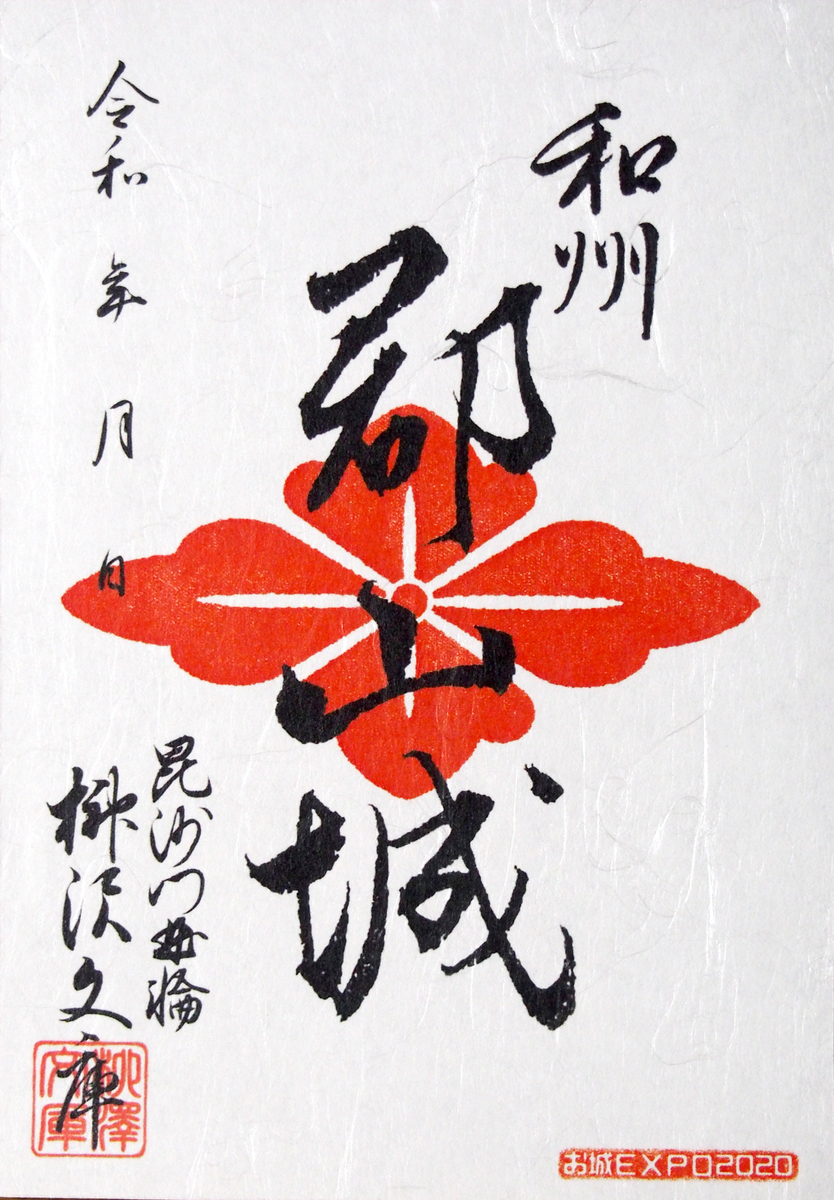 和州
郡山城
令和 年 月 日
毘沙門曲輪
柳沢文庫
柳澤文庫
お城EXPO2020